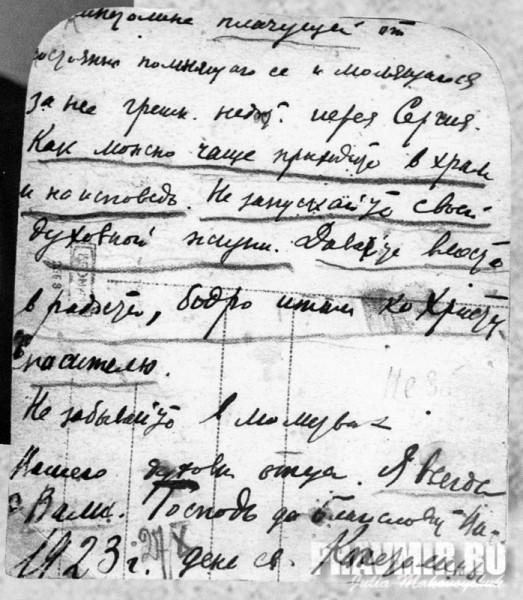 плачущей от
постоянно помнящаго ее и молящагося
за нее грешн. недост. иерея Сергия.
Как можно чаще приходите в храм
и на исповедь. Не запускайте своей
духовной жизни. Давайте вместе
в радости, бодро итти ко Христу
Спасителю.
Не забывайте в молитвах
Вашего духовн. отца. Я всегда
с Вами. Господь да благословит Ва-
1923 г. 24 X день св.
PRAVMIR.RU
Julia Makoveychuk